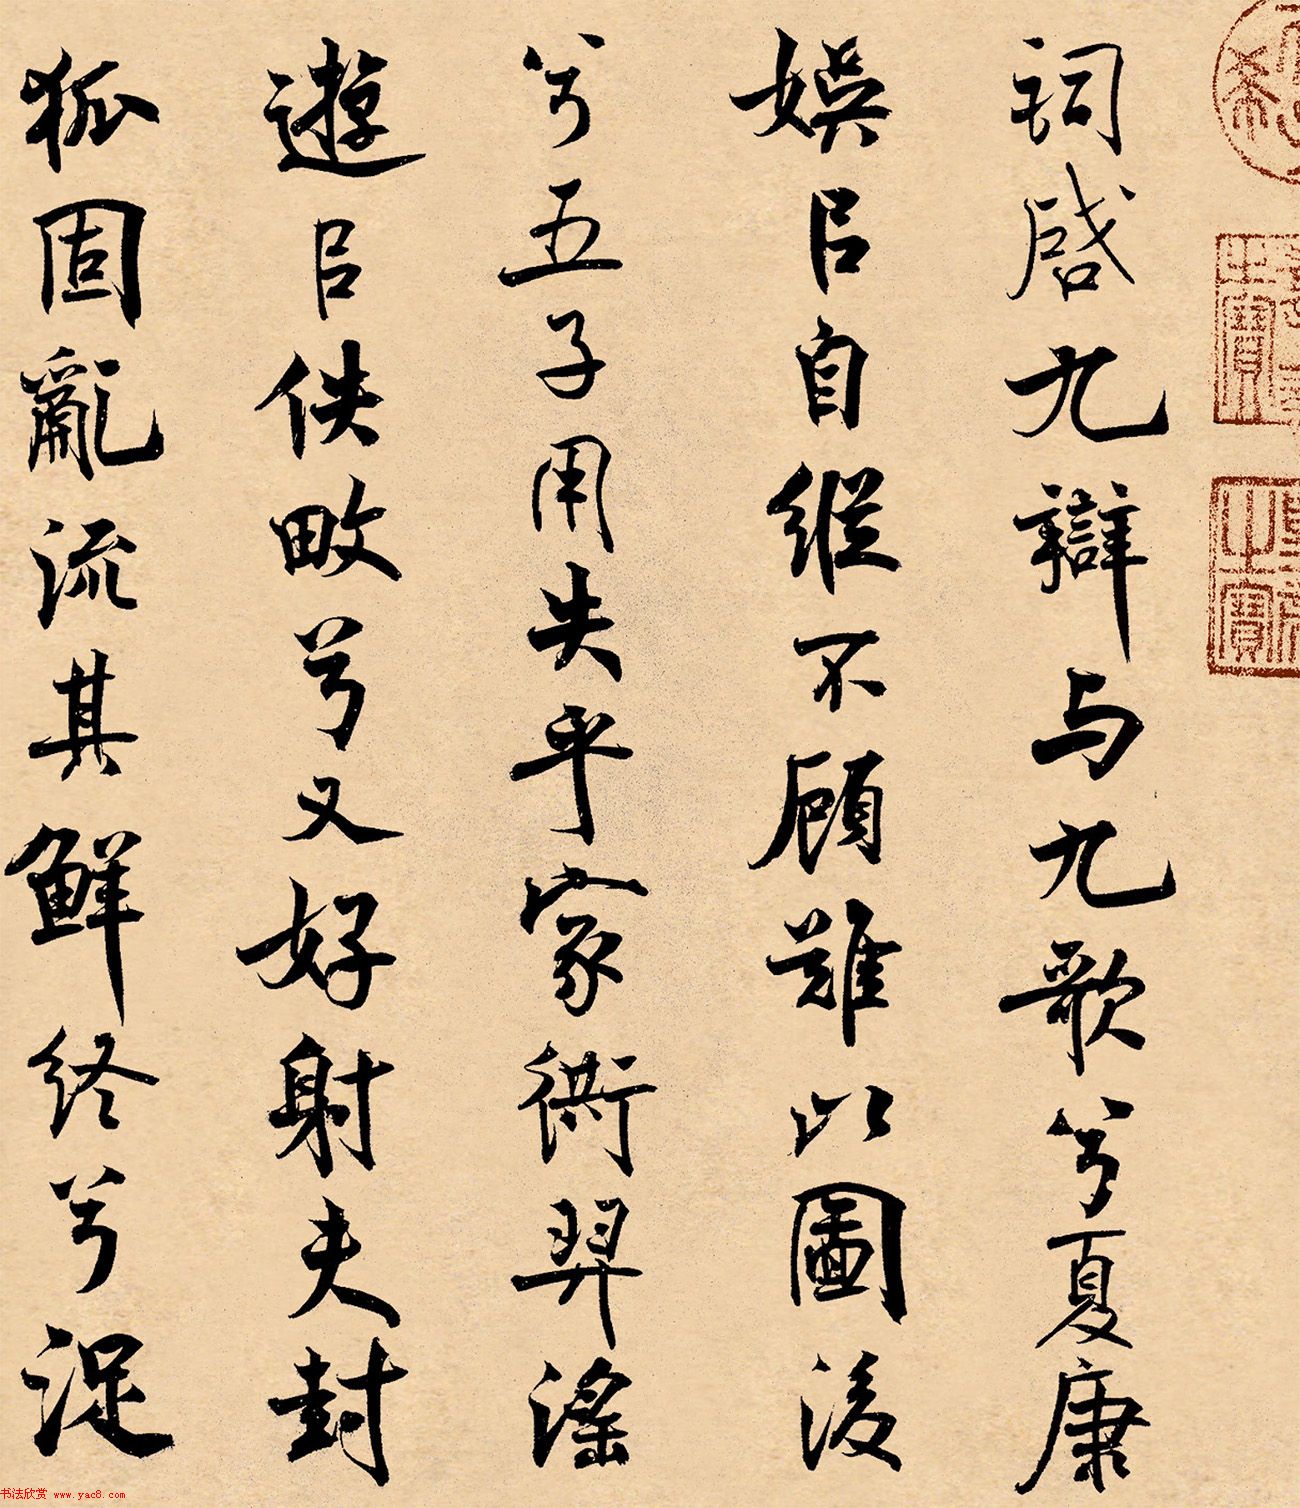 詞啟九辯与九歌兮夏康
娛㠯自縱不顧難以圖後
兮五子用失乎家衖羿滛
遊㠯佚畋兮又好射夫封
狐固亂流其鮮終兮浞
希
之寶
之寶
书法欣赏 www.yac8.com